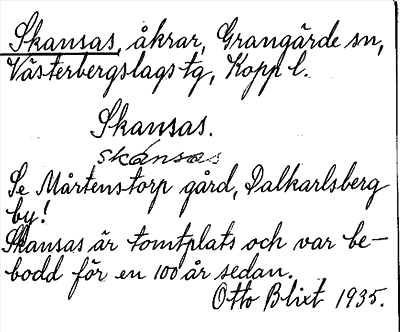 Skansas, åkrar, Grangärde sn,
Västerbergslags tg, Kopp l.
Skansas.
skánsas
Se Mårtenstorp gård, Dalkarlsberg
by!
Skansas är tomtplats och var be-
bodd för en 100 år sedan.
Otto Blixt 1935.